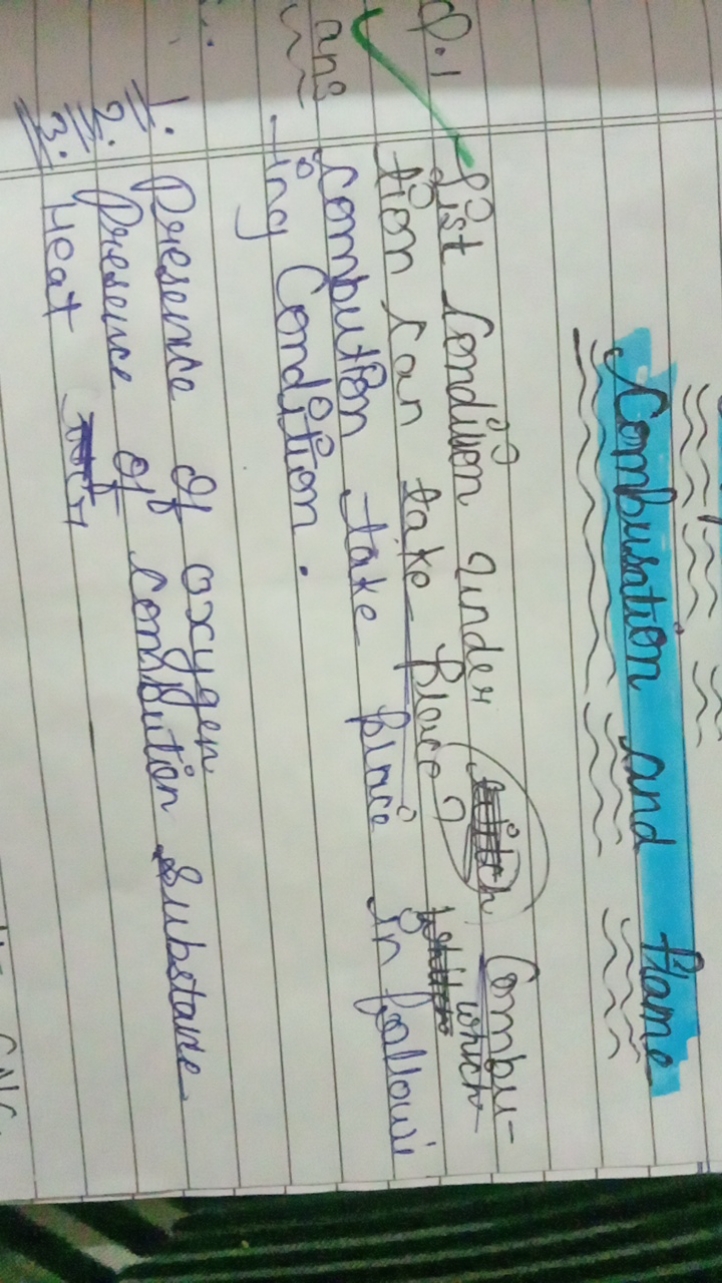 Combusntion and flame
Q.1 List Condition Under which Combu-
tion can take place?
ans Combution take place in followi
-ing Condition.
1. Presence of oxygen
2. Presence of Combution Substance
3. Heat